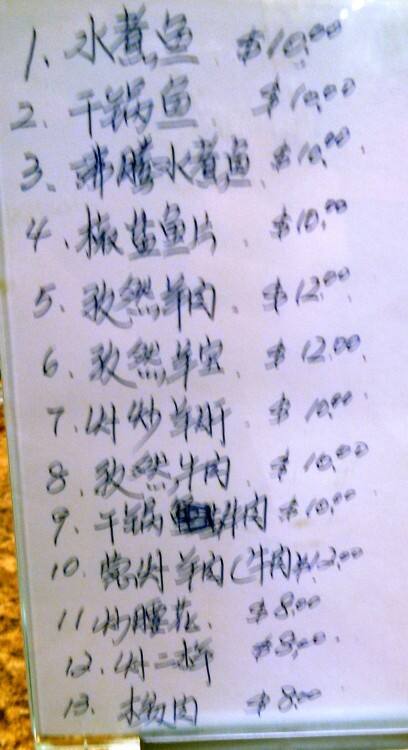 1、水煮鱼 $10.00
2. 干锅鱼 $10.00
3、沸腾水煮鱼 $10.00
4、椒盐鱼片. $10.00
5. 孜然羊肉. $12.00
6. 孜然羊宝. $12.00
7. 炒羊肝 $10.00
8. 孜然牛肉. $10.00
9. 干锅牛肉 $10.00
10. 羊肉(牛肉) $12.00
11 炒腰花. $8.00
12. $8.00
13. 肉 $8.00